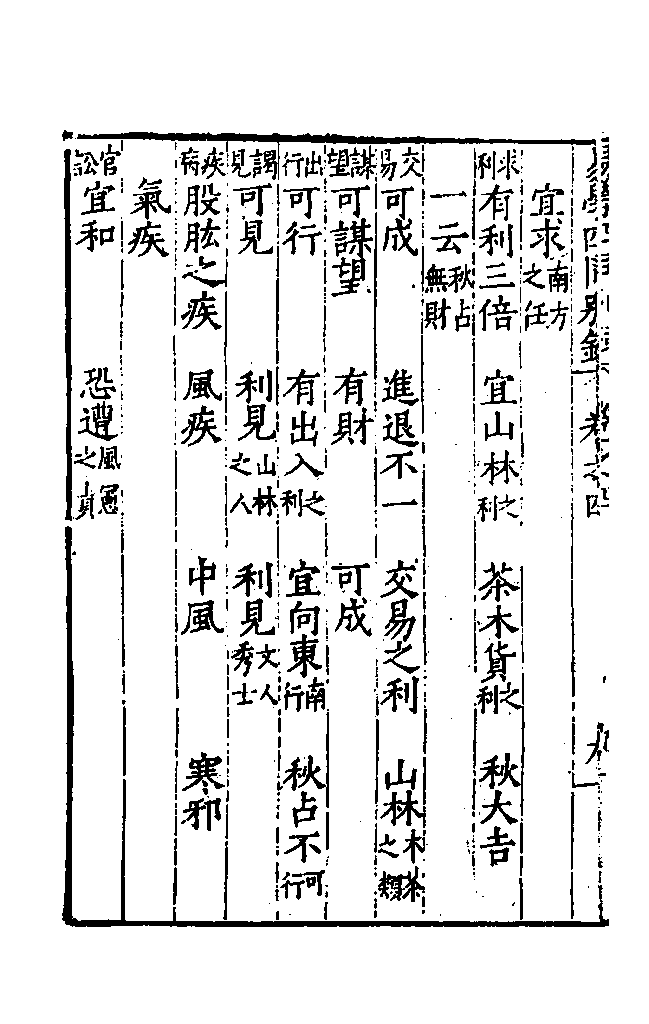 易學四同別錄 卷之四
宜求南方之任
求利 有利三倍 宜山林之利 茶木貨之利 秋大吉
一云秋占無財
交易 可成 進退不一 交易之利 山林木茶之類
謀望 可謀望 有財 可成
出行 可行 有出入之利 宜向東南行 秋占不可行
謁見 可見 利見山林之人 利見文人秀士
疾病 股肱之疾 風疾 中風 寒邪
氣疾
官訟 宜和 恐遭風憲之責